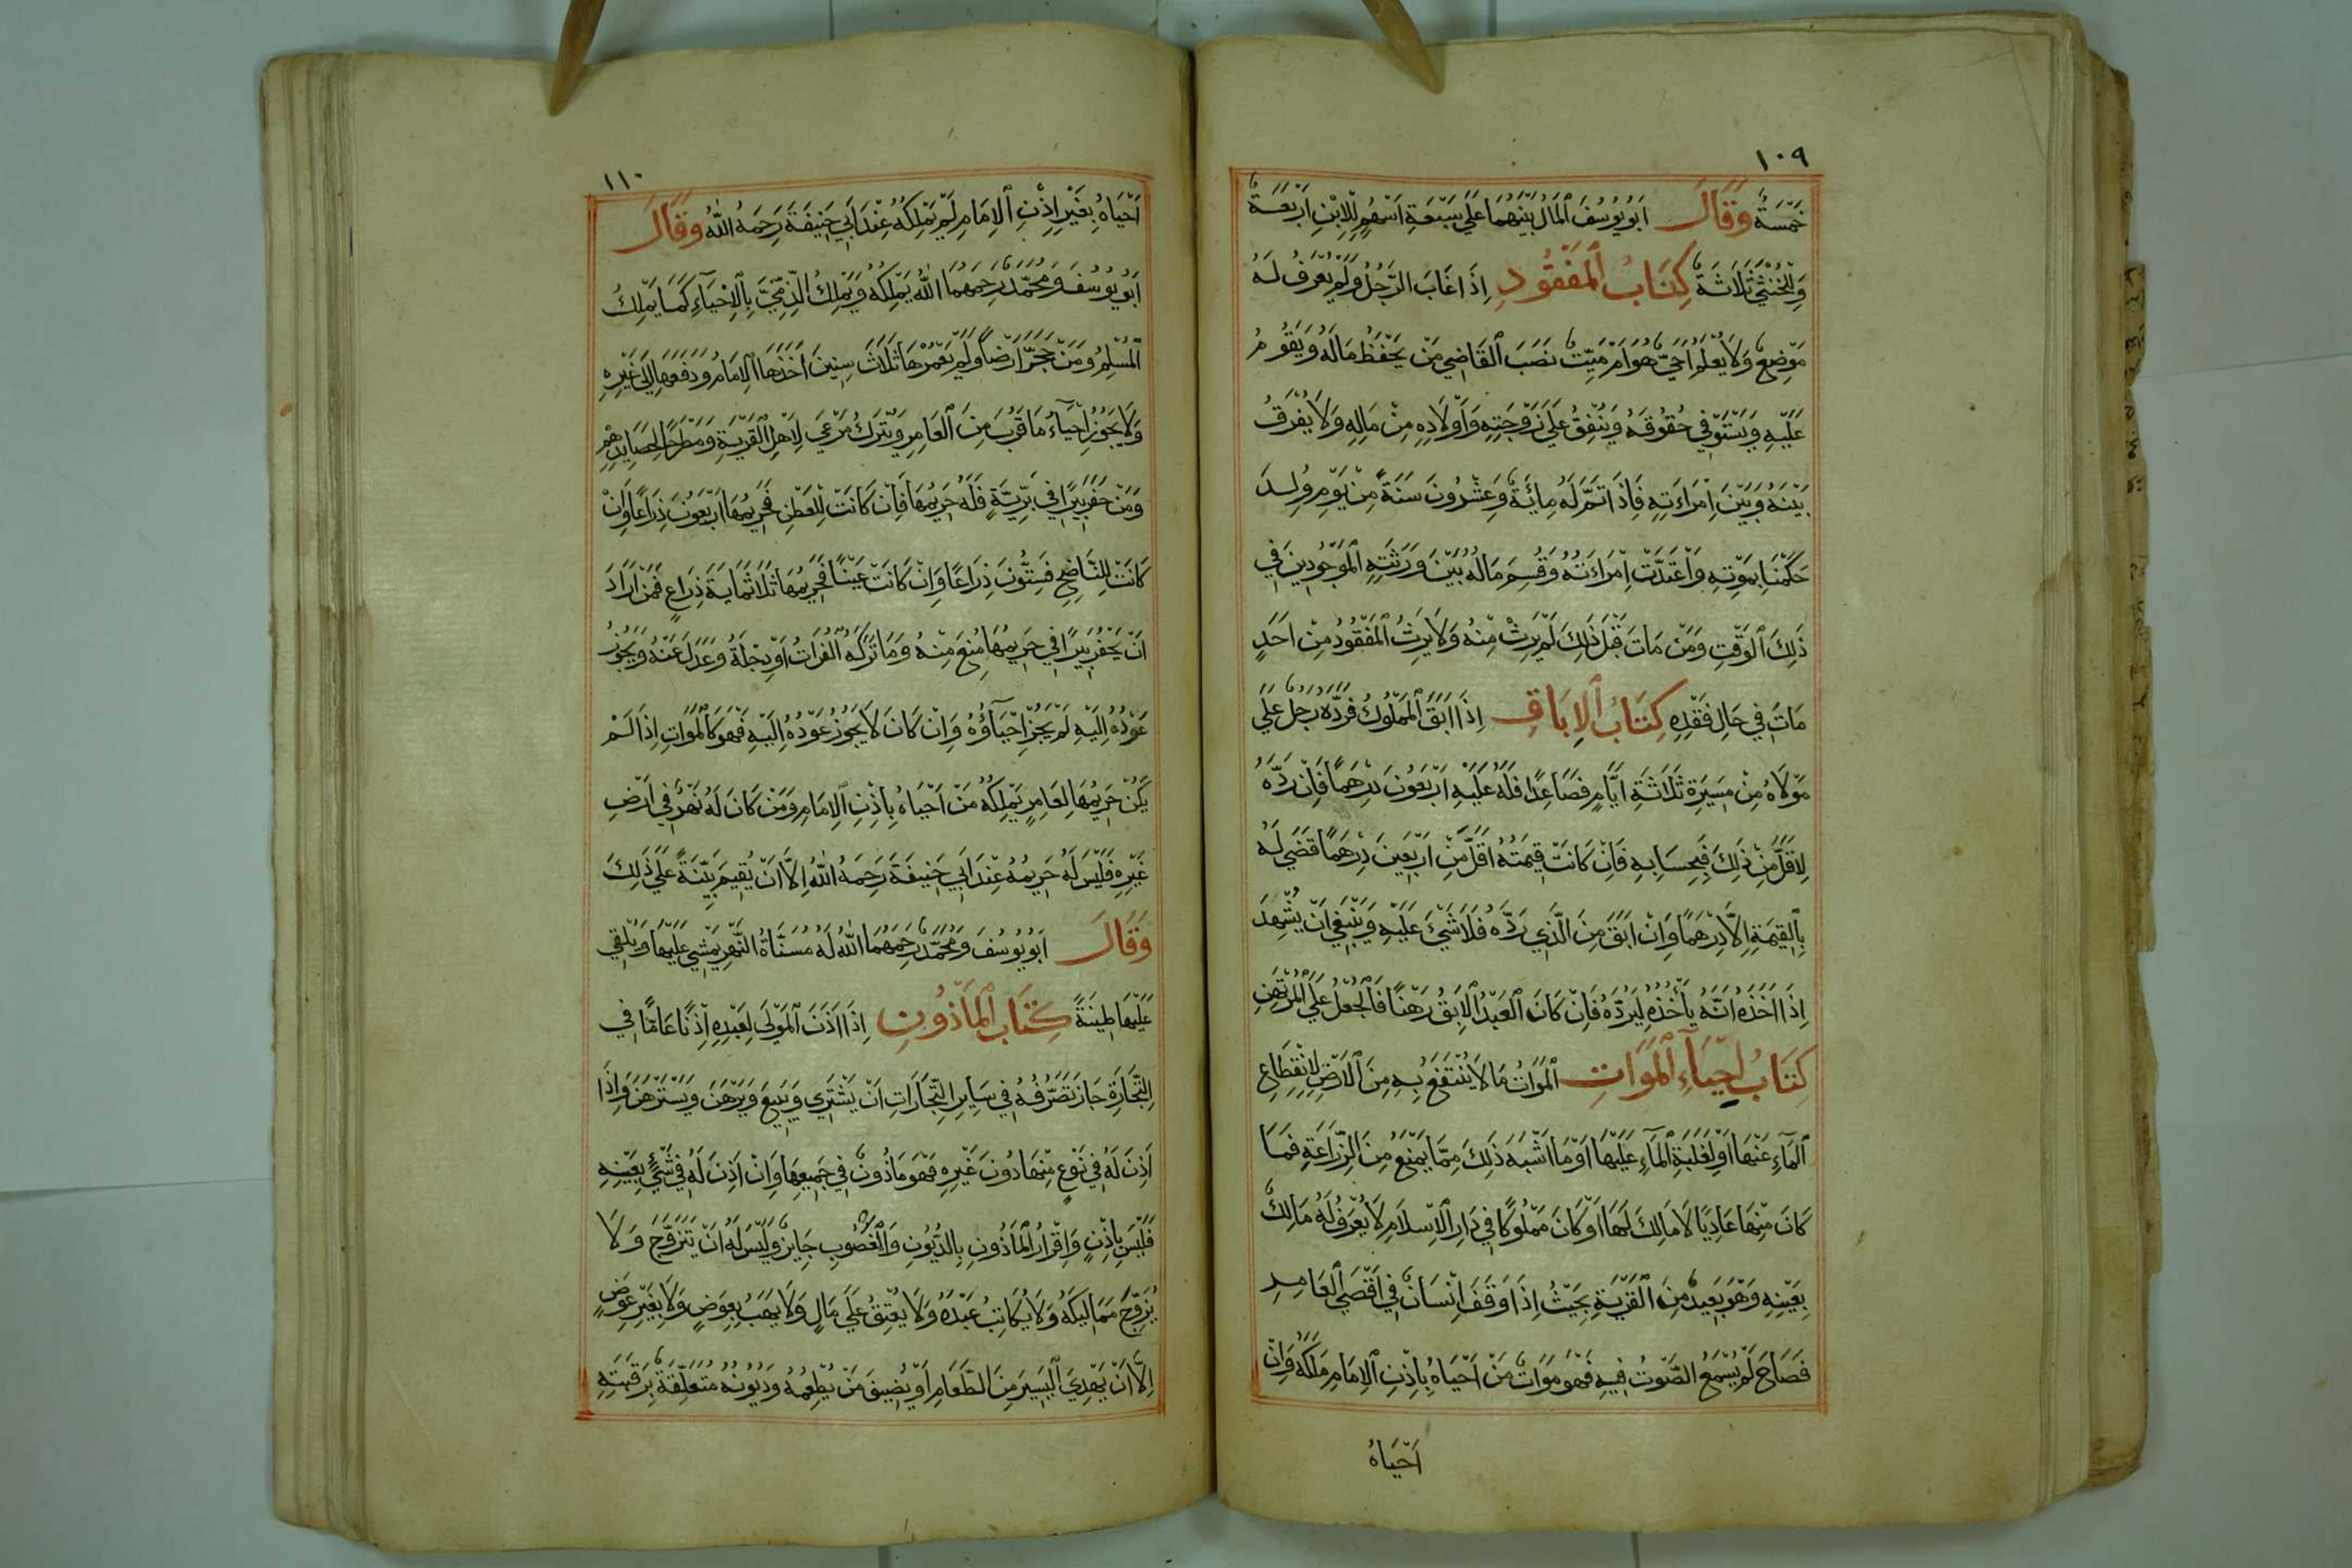 ١٠٩
خَمْسَةٌ وَقَالَ اَبُو يُوسُفَ الْمَالُ بَيْنَهُمَا عَلَى سَبْعَةِ اَسْهُمٍ لِلْاِبْنِ اَرْبَعَةٌ
وَلِلْخُنْثَى ثَلَاثَةٌ كِتَابُ الْمَفْقُودِ اِذَا غَابَ الرَّجُلُ وَلَمْ يُعْرَفْ لَهُ
مَوْضِعٌ وَلَا يُعْلَمُ اَحَيٌّ هُوَ اَمْ مَيِّتٌ نَصَبَ الْقَاضِي مَنْ يَحْفَظُ مَالَهُ وَيَقُومُ
عَلَيْهِ وَيَسْتَوْفِي حُقُوقَهُ وَيُنْفِقُ عَلَى زَوْجَتِهِ وَاَوْلَادِهِ مِنْ مَالِهِ وَلَا يُفَرَّقُ
بَيْنَهُ وَبَيْنَ اِمْرَاَتِهِ فَاِذَا تَمَّ لَهُ مِائَةٌ وَعِشْرُونَ سَنَةً مِنْ يَوْمِ وُلِدَ
حَكَمْنَا بِمَوْتِهِ وَاعْتَدَّتْ اِمْرَاَتُهُ وَقُسِمَ مَالُهُ بَيْنَ وَرَثَتِهِ الْمَوْجُودِينَ فِي
ذَلِكَ الْوَقْتِ وَمَنْ مَاتَ قَبْلَ ذَلِكَ لَمْ يَرِثْ مِنْهُ وَلَا يَرِثُ الْمَفْقُودُ مِنْ اَحَدٍ
مَاتَ فِي حَالِ فَقْدِهِ كِتَابُ الْاِبَاقِ اِذَا اَبَقَ الْمَمْلُوكُ فَرَدَّهُ رَجُلٌ عَلَى
مَوْلَاهُ مِنْ مَسِيرَةِ ثَلَاثَةِ اَيَّامٍ فَصَاعِدًا فَلَهُ عَلَيْهِ اَرْبَعُونَ دِرْهَمًا فَاِنْ رَدَّهُ
لِاَقَلَّ مِنْ ذَلِكَ فَبِحِسَابِهِ فَاِنْ كَانَتْ قِيمَتُهُ اَقَلَّ مِنْ اَرْبَعِينَ دِرْهَمًا قُضِيَ لَهُ
بِالْقِيمَةِ اِلَّا دِرْهَمًا وَاِنْ اَبَقَ مِنَ الَّذِي رَدَّهُ فَلَا شَيْئَ عَلَيْهِ وَيَنْبَغِي اَنْ يُشْهِدَ
اِذَا اَخَذَهُ اَنَّهُ يَأْخُذُهُ لِيَرُدَّهُ فَاِنْ كَانَ الْعَبْدُ الْاٰبِقُ رَهْنًا فَالْجُعْلُ عَلَى الْمُرْتَهِنِ
كِتَابُ اِحْيَاۤءِ الْمَوَاتِ اَلْمَوَاتُ مَا لَا يُنْتَفَعُ بِهِ مِنَ الْاَرْضِ لِانْقِطَاعِ
الْمَاۤءِ عَنْهَا اَوْ لِغَلَبَةِ الْمَاۤءِ عَلَيْهَا اَوْ مَا اَشْبَهَ ذَلِكَ مِمَّا يَمْنَعُ مِنَ الزِّرَاعَةِ فَمَا
كَانَ مِنْهَا عَادِيًا لَا مَالِكَ لَهَا اَوْ كَانَ مَمْلُوكًا فِي دَارِ الْاِسْلَامِ لَا يُعْرَفُ لَهُ مَالِكٌ
بِعَيْنِهِ وَهُوَ بَعِيدٌ مِنَ الْقَرْيَةِ بِحَيْثُ اِذَا وَقَفَ اِنْسَانٌ فِي اَقْصَى الْعَامِرِ
فَصَاحَ لَمْ يُسْمَعِ الصَّوْتُ فِيهِ فَهُوَ مَوَاتٌ مَنْ اَحْيَاهُ بِاِذْنِ الْاِمَامِ مَلَكَهُ وَاِنْ
اَحْيَاهُ
١١٠
اَحْيَاهُ بِغَيْرِ اِذْنِ الْاِمَامِ لَمْ يَمْلِكْهُ عِنْدَ اَبِي حَنِيفَةَ رَحِمَهُ اللّٰهُ وَقَالَ
اَبُو يُوسُفَ وَمُحَمَّدٌ رَحِمَهُمَا اللّٰهُ يَمْلِكُهُ وَيَمْلِكُ الذِّمِّيُّ بِالْاِحْيَاۤءِ كَمَا يَمْلِكُ
الْمُسْلِمُ وَمَنْ حَجَّرَ اَرْضًا وَلَمْ يَعْمُرْهَا ثَلَاثَ سِنِينَ اَخَذَهَا الْاِمَامُ وَدَفَعَهَا اِلَى غَيْرِهِ
وَلَا يَجُوزُ اِحْيَاۤءُ مَا قَرُبَ مِنَ الْعَامِرِ وَيُتْرَكُ مَرْعًى لِاَهْلِ الْقَرْيَةِ وَمَطْرَحًا لِحَصَايِدِهِمْ
وَمَنْ حَفَرَ بِيرًا فِي بَرِّيَّةٍ فَلَهُ حَرِيمُهَا فَاِنْ كَانَتْ لِلْعَطَنِ فَحَرِيمُهَا اَرْبَعُونَ ذِرَاعًا وَاِنْ
كَانَتْ لِلنَّاضِحِ فَسِتُّونَ ذِرَاعًا وَاِنْ كَانَتْ عَيْنًا فَحَرِيمُهَا ثَلَاثُمِايَةِ ذِرَاعٍ فَمَنْ اَرَادَ
اَنْ يَحْفُرَ بِيرًا فِي حَرِيمِهَا مُنِعَ مِنْهُ وَمَا تَرَكَهُ الْفُرَاتُ اَوْ دِجْلَةُ وَعَدَلَ عَنْهُ وَيَجُوزُ
عَوْدُهُ اِلَيْهِ لَمْ يَجُزْ اِحْيَاۤؤُهُ وَاِنْ كَانَ لَا يَجُوزُ عَوْدُهُ اِلَيْهِ فَهُوَ كَالْمَوَاتِ اِذَا لَمْ
يَكُنْ حَرِيمُهَا لِعَامِرٍ يَمْلِكُهُ مَنْ اَحْيَاهُ بِاِذْنِ الْاِمَامِ وَمَنْ كَانَ لَهُ نَهْرٌ فِي اَرْضِ
غَيْرِهِ فَلَيْسَ لَهُ حَرِيمُهُ عِنْدَ اَبِي حَنِيفَةَ رَحِمَهُ اللّٰهُ اِلَّا اَنْ يُقِيمَ بَيِّنَةً عَلَى ذَلِكَ
وَقَالَ اَبُو يُوسُفَ وَمُحَمَّدٌ رَحِمَهُمَا اللّٰهُ لَهُ مُسَنَّاةُ النَّهْرِ يَمْشِي عَلَيْهَا وَيُلْقِي
عَلَيْهَا طِينَةً كِتَابُ الْمَأْذُونِ اِذَا اَذِنَ الْمَوْلَى لِعَبْدِهِ اِذْنًا عَامًّا فِي
التِّجَارَةِ جَازَ تَصَرُّفُهُ فِي سَايِرِ التِّجَارَاتِ اَنْ يَشْتَرِي وَيَبِيعَ وَيَرْهَنَ وَيَسْتَرْهِنَ وَاِذَا
اَذِنَ لَهُ فِي نَوْعٍ مِنْهَا دُونَ غَيْرِهِ فَهُوَ مَاذُونٌ فِي جَمِيعِهَا وَاِنْ اَذِنَ لَهُ فِي شَيْئٍ بِعَيْنِهِ
فَلَيْسَ بِاِذْنٍ وَاِقْرَارُ الْمَاذُونِ بِالدُّيُونِ وَالْغُصُوبِ جَايِزٌ وَلَيْسَ لَهُ اَنْ يَتَزَوَّجَ وَلَا
يُزَوِّجَ مَمَالِيكَهُ وَلَا يُكَاتِبُ عَبْدَهُ وَلَا يُعْتِقُ عَلَى مَالٍ وَلَا يَهَبُ بِعِوَضٍ وَلَا بِغَيْرِ عِوَضٍ
اِلَّا اَنْ يُهْدِيَ الْيَسِيرَ مِنَ الطَّعَامِ اَوْ يُضِيفَ مَنْ يُطْعِمُهُ وَدُيُونُهُ مُتَعَلِّقَةٌ بِرَقَبَتِهِ